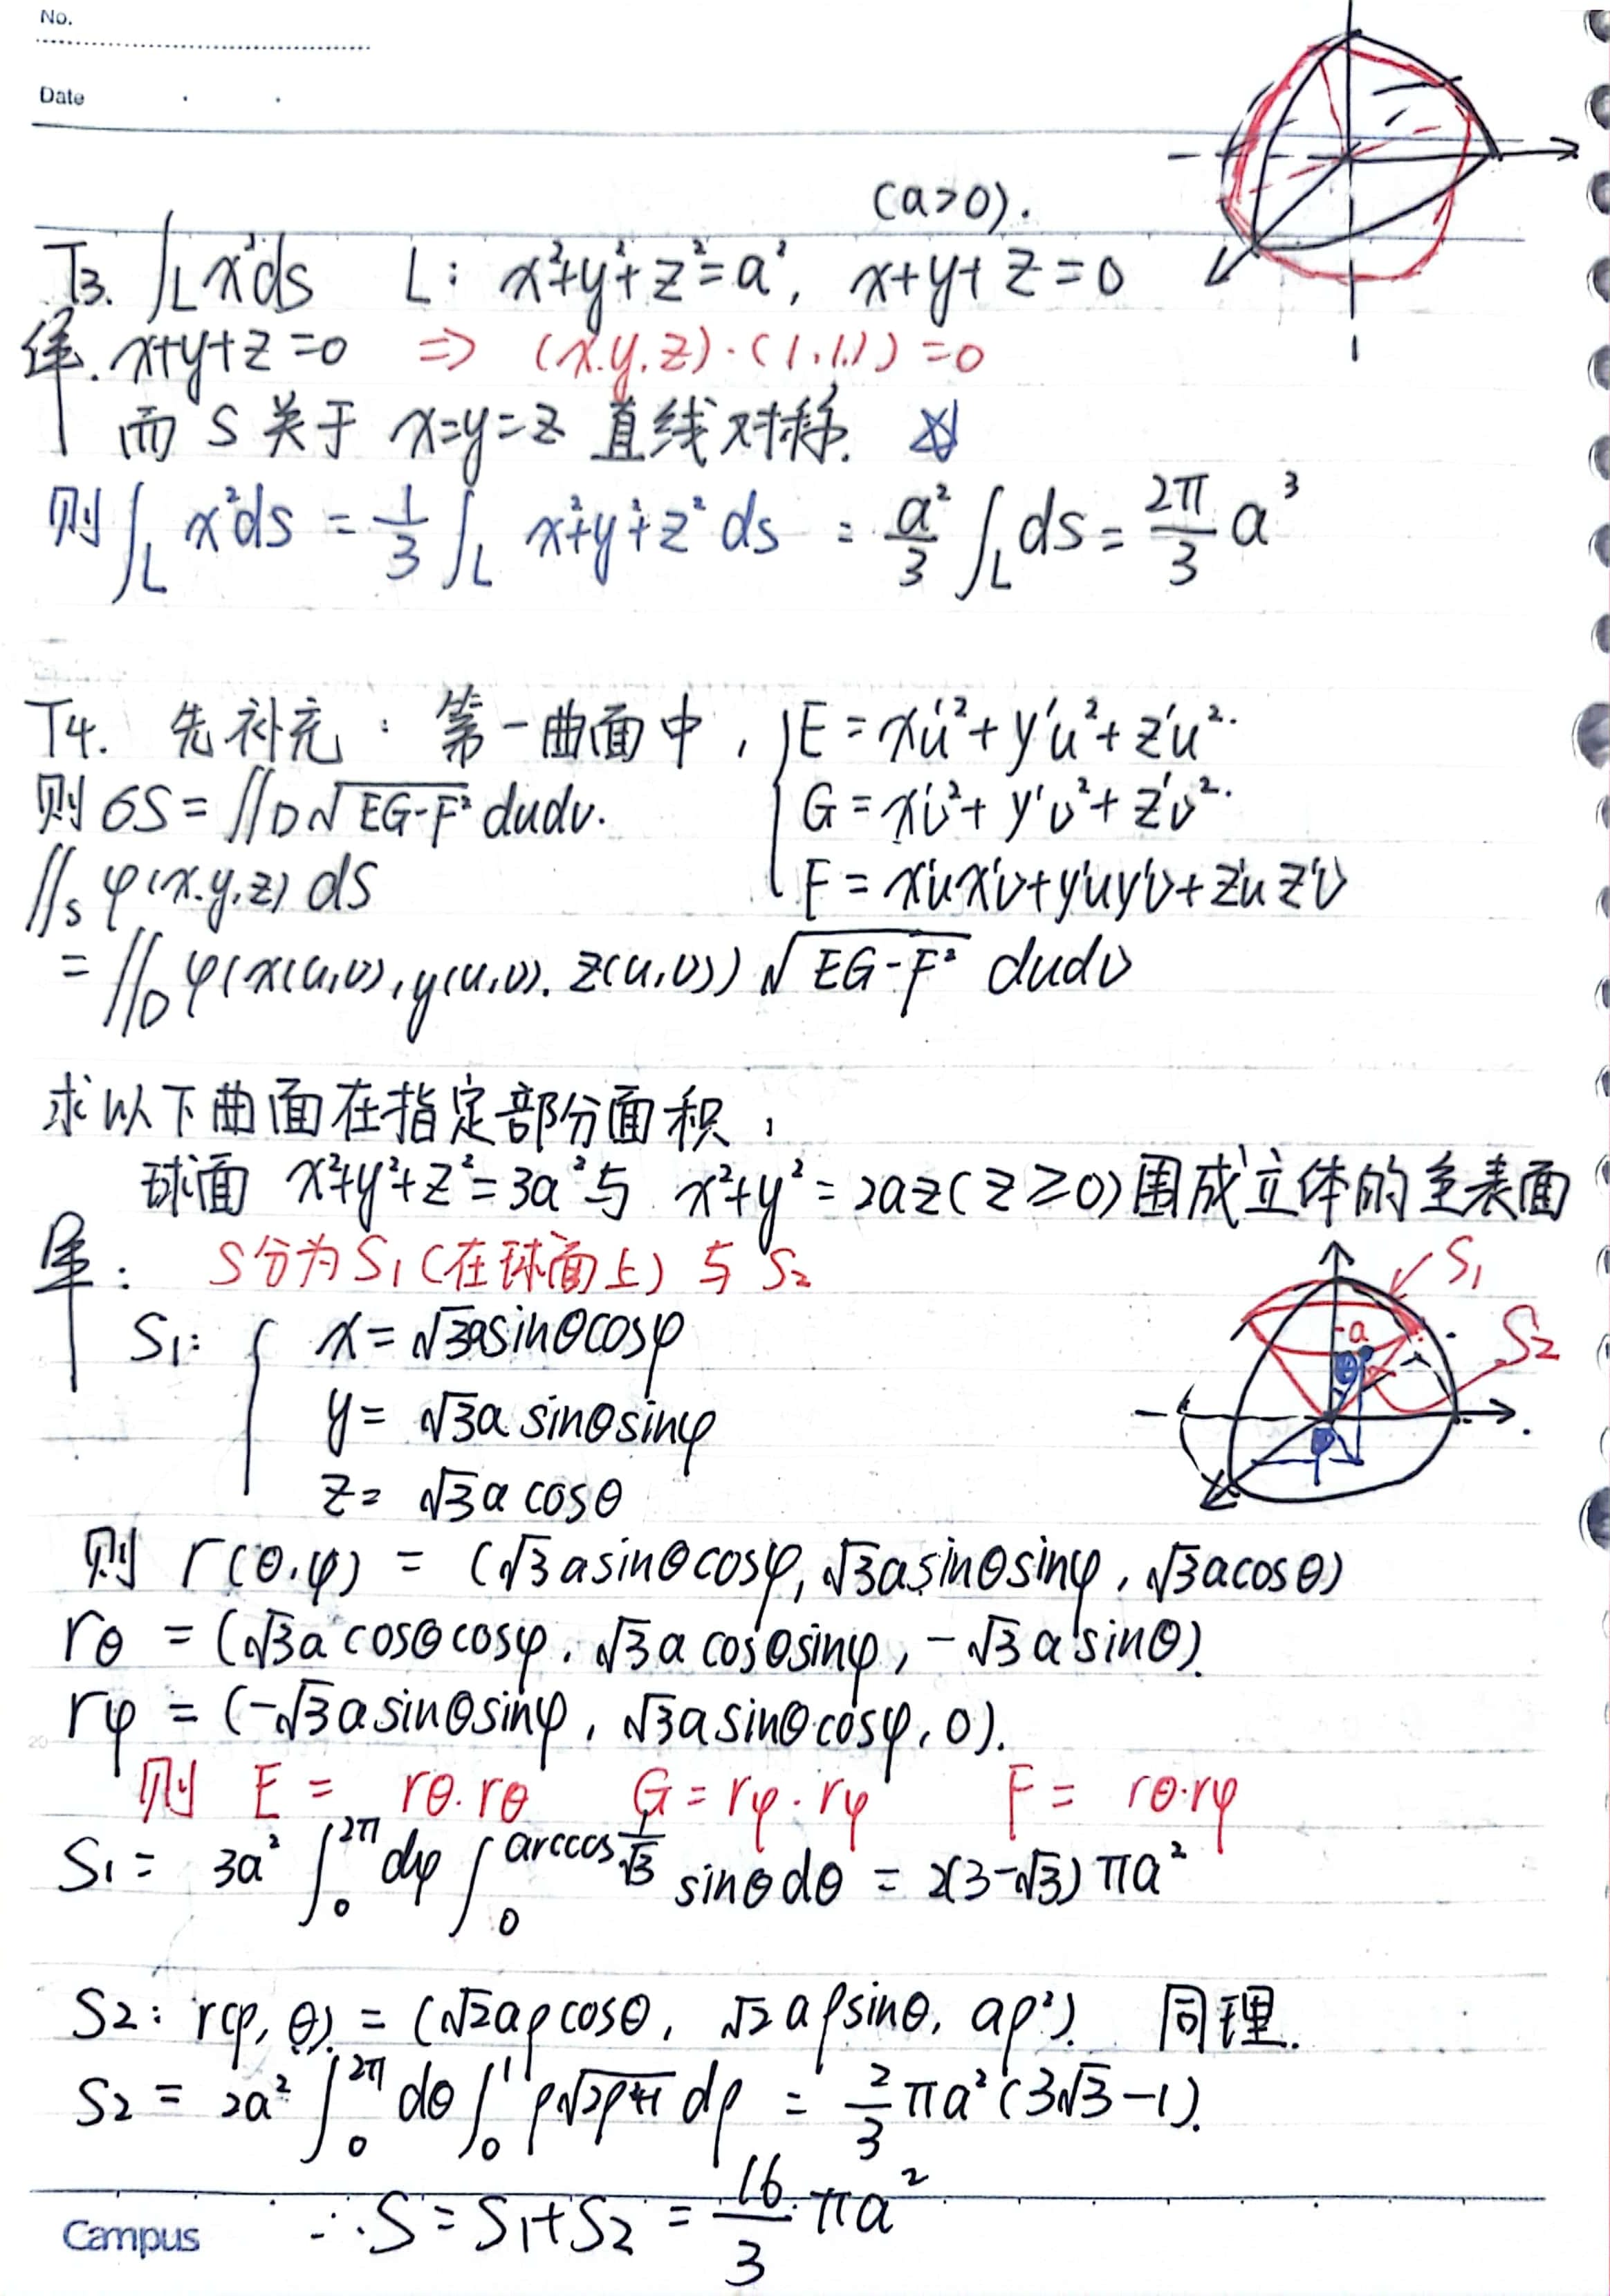 No.
Date
(a>0).
T3. ∫_L x²ds L: x²+y²+z²=a², x+y+z=0
解. x+y+z=0 ⇒ (x.y.z)·(1.1.1)=0
而 S 关于 x=y=z 直线对称.
则∫_L x²ds = 1/3 ∫_L x²+y²+z² ds = a²/3 ∫_L ds = 2π/3 a³
T4. 先补充: 第一曲面中, { E = x'u²+y'u²+z'u².
则 σS = ∬_D √(EG-F²) dudv. G = x'v²+y'v²+z'v².
∬_S φ(x.y.z) dS F = x'ux'v+y'uy'v+z'uz'v
= ∬_D φ(x(u,v), y(u,v). z(u,v)) √(EG-F²) dudv
求以下曲面在指定部分面积,
球面 x²+y²+z²=3a² 与 x²+y²=2az (z≥0) 围成立体的全表面
解: S分为S₁(在球面上)与S₂
S₁
a
S₂
θ
φ
S₁: { x = √3asinθcosφ
y = √3a sinθsinφ
z = √3a cosθ
则 r(θ.φ) = (√3asinθcosφ, √3asinθsinφ, √3acosθ)
rθ = (√3a cosθcosφ. √3a cosθsinφ, -√3a sinθ).
rφ = (-√3asinθsinφ, √3asinθcosφ, 0).
则 E = rθ·rθ G = rφ·rφ F = rθ·rφ
S₁ = 3a² ∫₀^{2π} dφ ∫₀^{arccos 1/√3} sinθdθ = 2(3-√3)πa²
S₂: r(ρ,θ) = (√2aρcosθ, √2aρsinθ, aρ²). 同理.
S₂ = 2a² ∫₀^{2π} dθ ∫₀^1 ρ√(2ρ²+1) dρ = 2/3 πa²(3√3-1).
∴ S = S₁+S₂ = 16/3 πa²
Campus